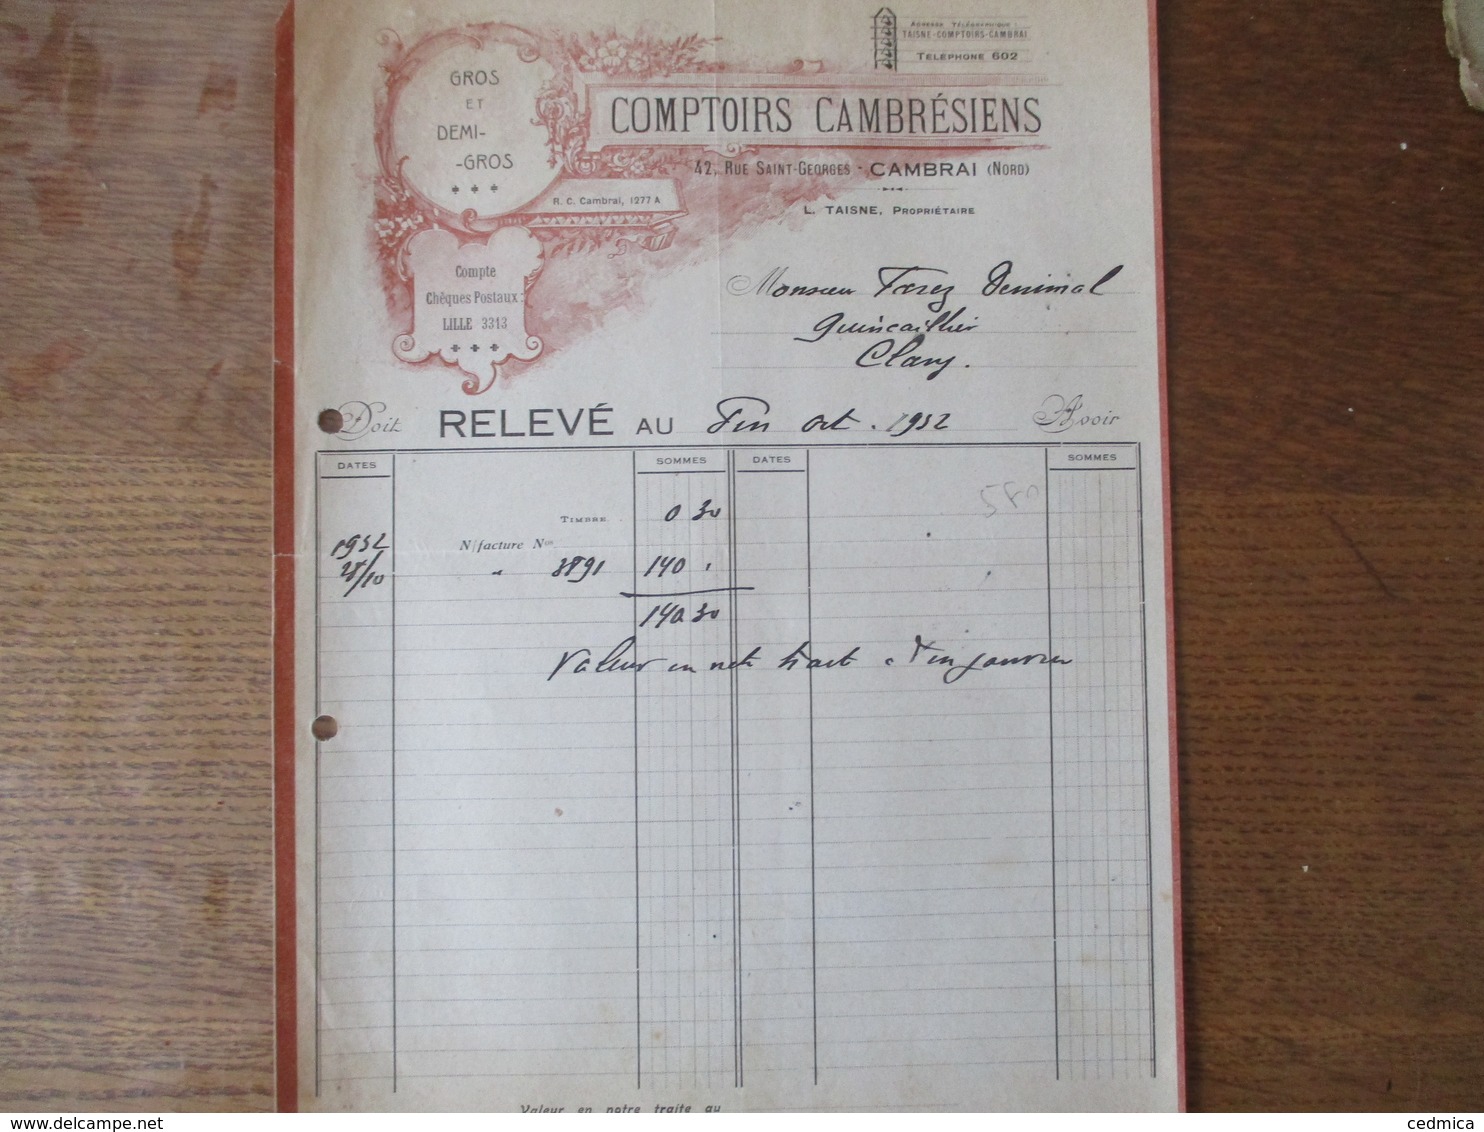 GROS
ET
DEMI-
-GROS
ADRESSE TÉLÉGRAPHIQUE :
TAISNE-COMPTOIRS-CAMBRAI
TÉLÉPHONE 602
COMPTOIRS CAMBRÉSIENS
42, RUE SAINT-GEORGES - CAMBRAI (NORD)
R. C. Cambrai, 1277 A
L. TAISNE, PROPRIÉTAIRE
Compte
Chèques Postaux :
LILLE 3313
Monsieur Farez Denimal
quincaillier
Clary.
Doit RELEVÉ AU Fin oct. 1932 Avoir
DATES SOMMES DATES SOMMES
580
TIMBRE 0 30
1932 N/facture Nos
28/10 " 3891 140 ,
140 30
Valeur en notre traite à fin janvier
Valeur en notre traite au
cedmica